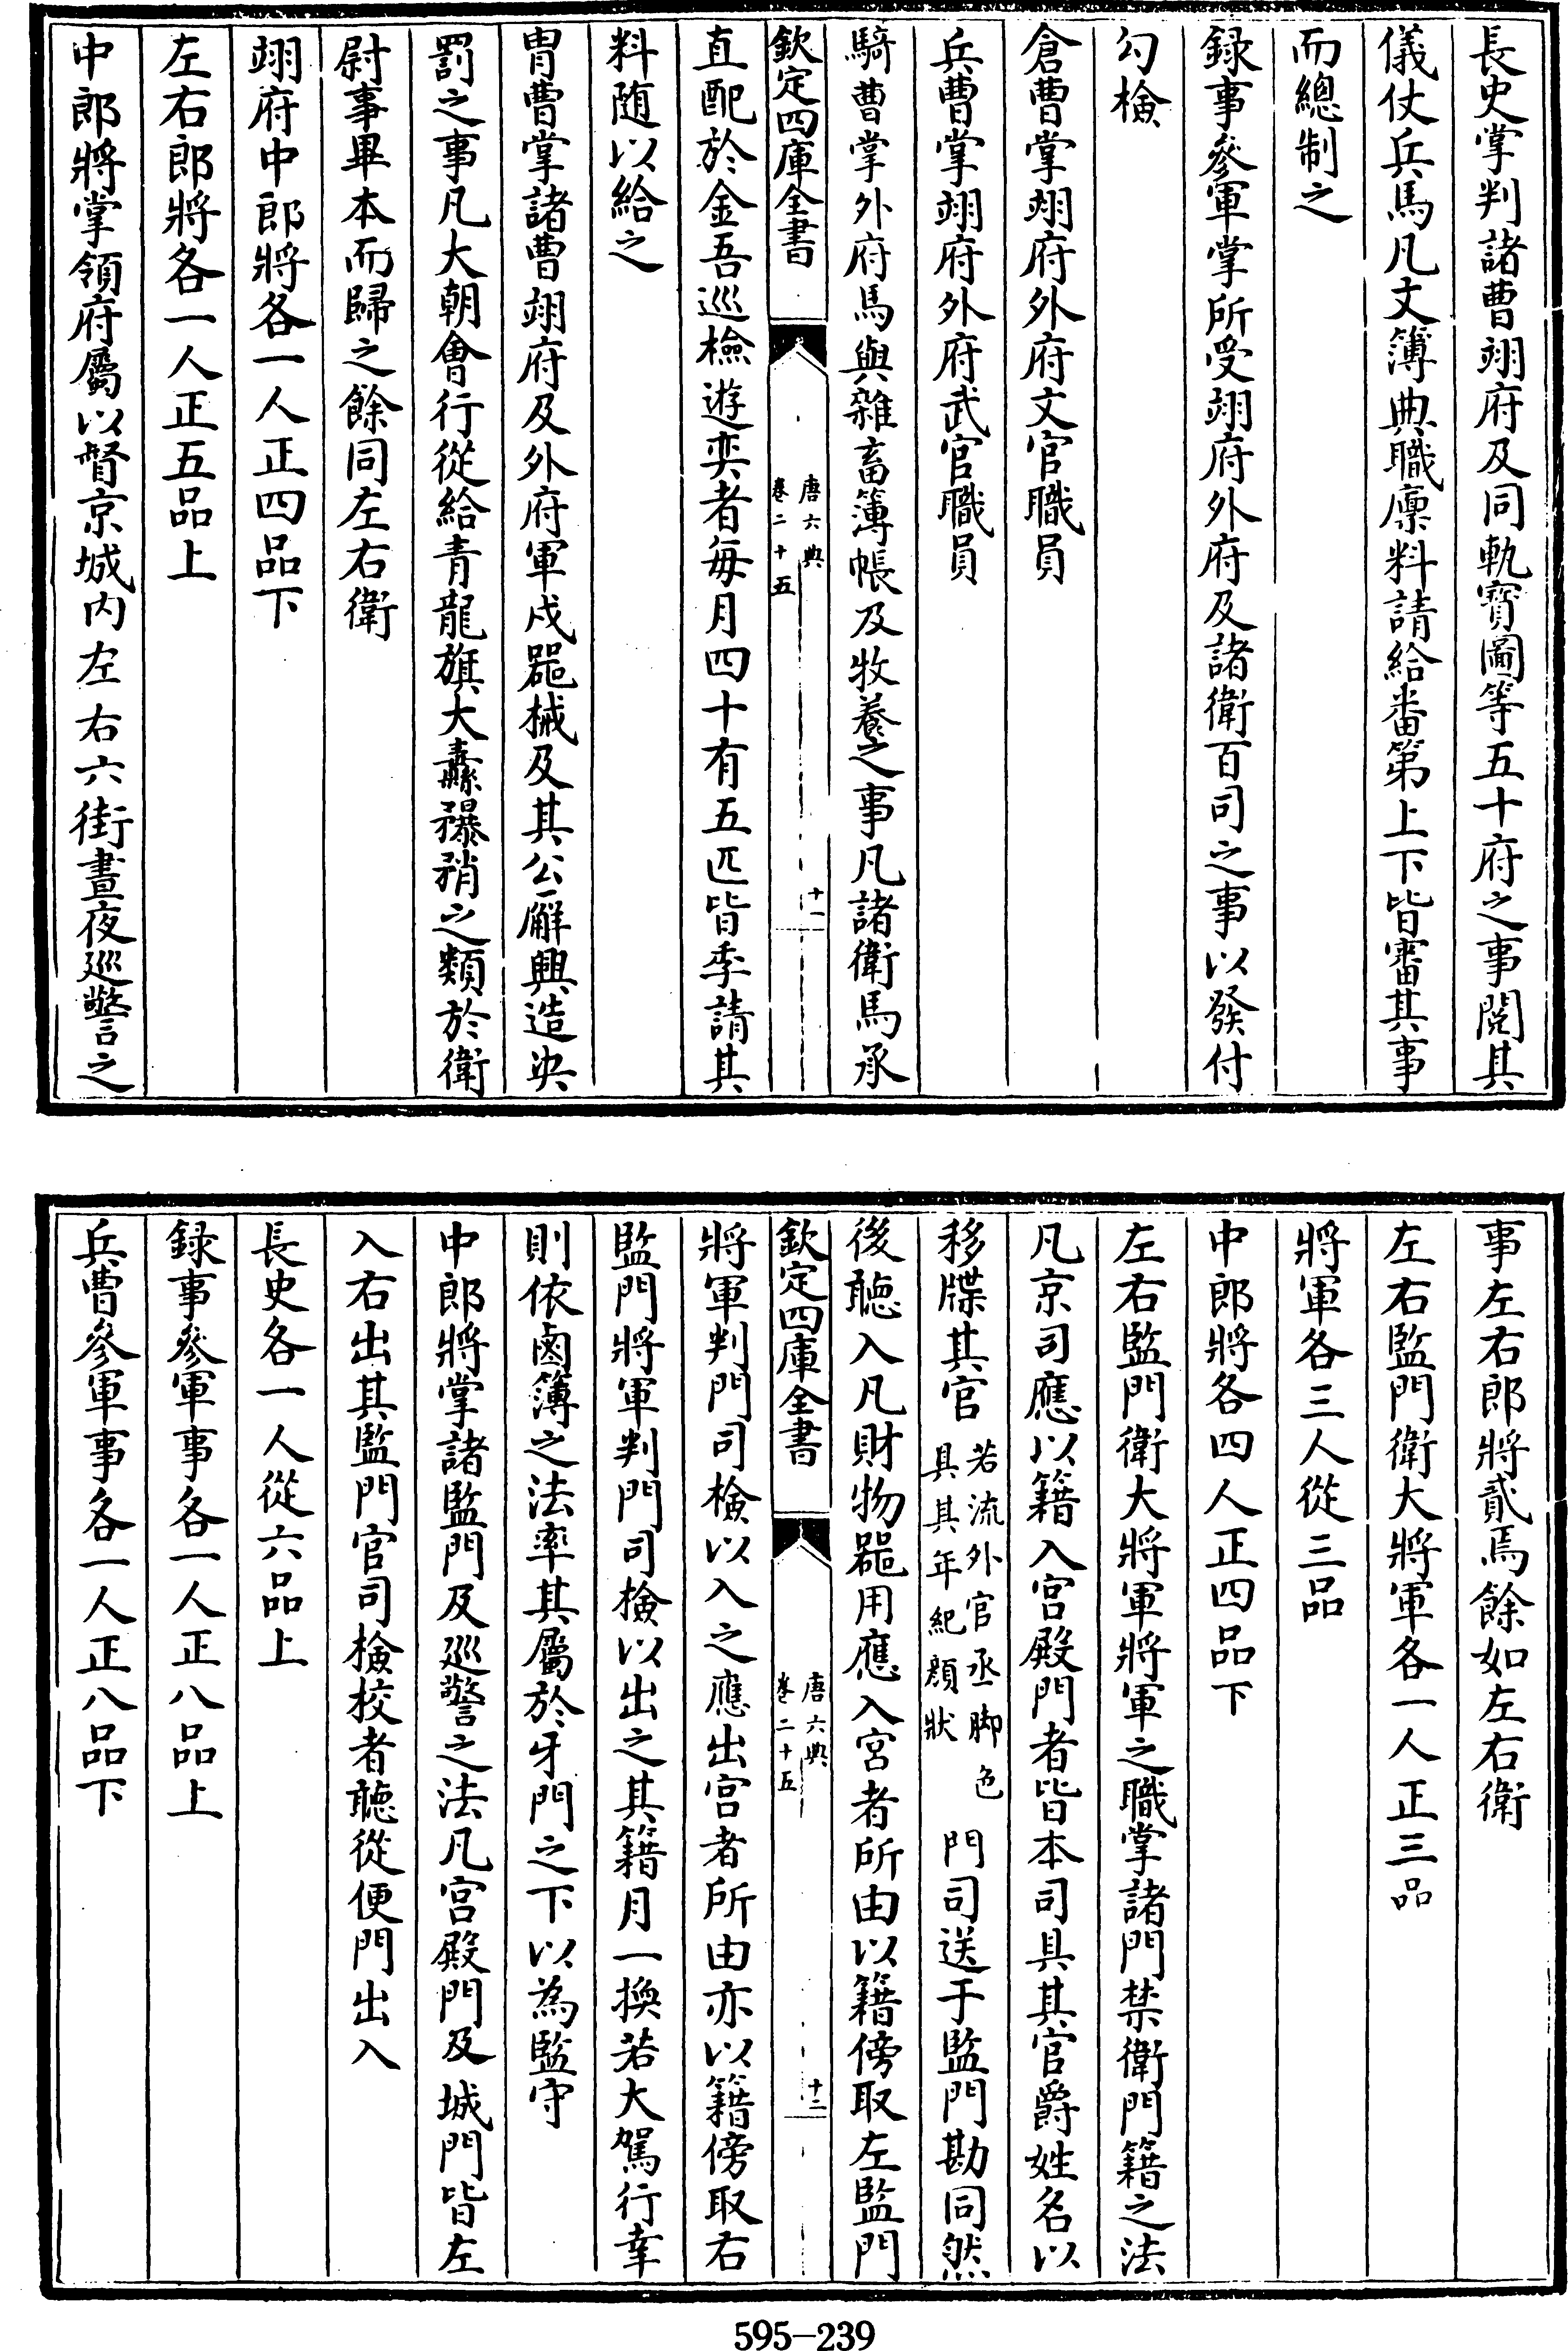 長史掌判諸曹翊府及同軌寳圖等五十府之事閱其
儀仗兵馬凡文簿典職廪料請給番第上下皆審其事
而總制之
録事參軍掌所受翊府外府及諸衛百司之事以發付
勾檢
倉曹掌翊府外府文官職員
兵曹掌翊府外府武官職員
騎曹掌外府馬與雜畜簿帳及牧養之事凡諸衛馬承
欽定四庫全書
唐六典
卷二十五
十一
直配於金吾巡檢遊奕者毎月四十有五匹皆季請其
料随以給之
胄曹掌諸曹翊府及外府軍戍器械及其公廨興造決
罰之事凡大朝會行從給青龍旗大纛𥎞矟之類於衛
尉事畢本而歸之餘同左右衛
翊府中郎將各一人正四品下
左右郎將各一人正五品上
中郎將掌領府屬以督京城内左右六街晝夜巡警之
事左右郎將貳焉餘如左右衛
左右監門衛大將軍各一人正三品
將軍各三人從三品
中郎將各四人正四品下
左右監門衛大將軍將軍之職掌諸門禁衛門籍之法
凡京司應以籍入宫殿門者皆本司具其官爵姓名以
移牒其官若流外官丞脚色具其年紀顔狀門司送于監門勘同然
後聽入凡財物器用應入宮者所由以籍傍取左監門
欽定四庫全書
唐六典
卷二十五
十二
將軍判門司檢以入之應出宫者所由亦以籍傍取右
監門將軍判門司檢以出之其籍月一換若大駕行幸
則依鹵簿之法率其屬於牙門之下以為監守
中郎將掌諸監門及巡警之法凡宫殿門及城門皆左
入右出其監門官司檢校者聽從便門出入
長史各一人從六品上
録事參軍事各一人正八品上
兵曹參軍事各一人正八品下
595-239